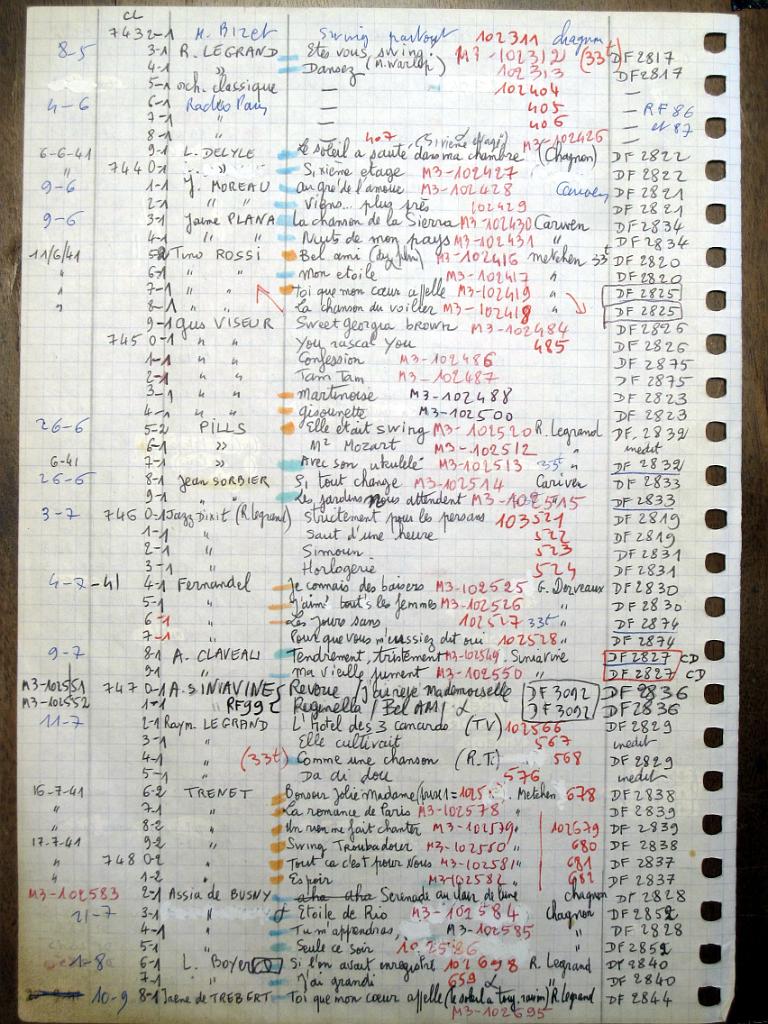 CL
7432-1 M. Bizet Swing partout 102311 chagnon
8-5 3-1 R. LEGRAND Etes vous swing. M3-102312 (33t) DF2817
4-1 " Dansez (M. Warlop) 102313 DF2817
5-1 orch. classique — 102404 —
4-6 6-1 Radio Paris — 405 — RF 86
7-1 " — 406 — et 87
8-1 " 407 (Sixième etage) M3-102426 —
6-6-41 9-1 L. DELYLE Le soleil a sauté dans ma chambre (Chagnon) DF2822
" 744 0-1 " Sixième etage M3-102427 DF 2822
9-6 1-1 J. MOREAU Au gré de l'amour M3-102428 Cariven DF 2821
2-1 " Viens... plus près 102429 DF 2821
9-6 3-1 Jaime PLANA La chanson de la Sierra M3-102430 Cariven DF 2834
4-1 " " Nuits de mon pays M3-102431 " DF 2834
11/6/41 5-2 Tino ROSSI Bel ami (du film) M3-102416 metehen 33t DF 2820
" 6-1 " " Mon etoile M3-102417 " DF 2820
" 7-1 " " Toi que mon cœur appelle M3-102419 " DF 2825
" 8-1 " " La chanson du voilier M3-102418 " DF 2825
9-1 gus VISEUR Sweet georgia brown M3-102484 DF 2826
745 0-1 " " You rascal You 485 DF 2826
1-1 " " Confession M3-102486 DF 2875
2-1 " " Tam Tam M3-102487 DF 2875
3-1 " " Martinoise M3-102488 DF 2823
4-1 " " gisounette M3-102500 DF 2823
26-6 5-2 PILLS Elle etait swing M3-102520 R. Legrand DF. 2832
6-1 " Mr Mozart M3-102512 " inedit
6-41 7-1 " Avec son ukulélé M3-102513 33t " DF 2832
26-6 8-1 Jean SORBIER Si tout change M3-102514 Cariven DF 2833
9-1 " " Les jardins nous attendent M3-102515 DF 2833
3-7 746 0-1 Jazz Dixit (R. Legrand) Strictement pour les persans 103521 DF 2819
1-1 " Saut d'une heure 522 DF 2819
2-1 " Simoun 523 DF 2831
3-1 " Horlogerie 524 DF 2831
4-7-41 4-1 Fernandel Je connais des baisers M3-102525 G. Derveaux DF 2830
5-1 " J'aime tout's les femmes M3-102526 " DF 2830
6-1 " Les jours sans 102527 33t " DF 2874
7-1 " Pour que vous m'eussiez dit oui 102528 " DF 2874
9-7 8-1 A. CLAVEAU Tendrement, tristement M3-102549. Siniavine DF 2827 CD
9-1 " ma vieille jument M3-102550 " DF 2827 CD
M3-102551 747 0-1 A. SINIAVINE Reverie / J'ai revé Mademoiselle DF 3092 DF 2836
M3-102552 1-1 RF 992 Reginella / Bel AMI DF 3092 DF 2836
11-7 2-1 Raym. LEGRAND L'Hotel des 3 canards (TV) 102566 DF 2829
3-1 " Elle cultivait 567 inedit
4-1 " (33t) Comme une chanson (R.T.) 568 DF 2829
5-1 " Da di dou 576 inedit
16-7-41 6-2 TRENET Bonsoir Jolie Madame . Metehen 678 DF 2838
" 7-1 " La romance de Paris M3-102578 " DF 2839
" 8-2 " Un rien me fait chanter M3-102579 " 102679 DF 2839
17-7-41 9-2 " Swing Troubadour M3-102580 " 680 DF 2838
" 748 0-2 " Tout ça c'est pour Nous M3-102581 " 681 DF 2837
" 1-2 " Espoir M3-102582 " 682 DF 2837
M3-102583 2-1 Assia de BUSNY aha aha Serenade au clair de lune chagnon DF 2828
21-7 3-1 " Etoile de Rio M3-102584 chagnon DF 2852
4-1 " Tu m'apprendras, M3-102585 " DF 2828
5-1 " Seule ce soir 102586 " DF 2852
1-8 6-1 L. Boyer Si l'on avait enregistré 102698 R. Legrand DF 2840
7-1 " J'ai grandi 659 " DF 2840
10-9 8-1 Irene de TREBERT Toi que mon cœur appelle (le soleil a R. Legrand DF 2844
M3-102695